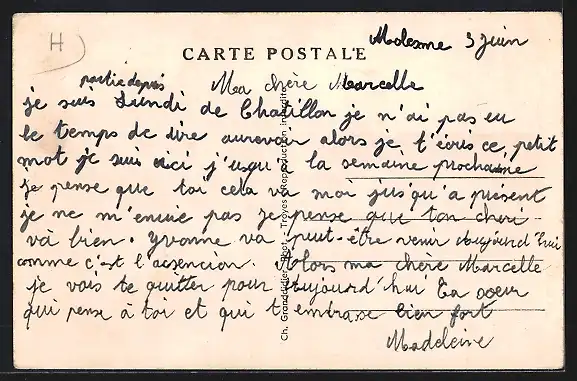 H
CARTE POSTALE
Molesme 3 juin
Ma chère Marcelle
partie depuis
je suis Lundi de Chatillon je n'ai pas eu
le temps de dire aurevoir alors je t'écris ce petit
mot je suis ici j'usqu'à la semaine prochaine
je pense que toi cela va moi jusqu'a présent
je ne m'ennuie pas je pense que ton cheri
va bien. Yvonne va peut-être venir aujourd'hui
comme c'est l'asencion. Alors ma chère Marcelle
je vais te quitter pour aujourd'hui Ta soeur
qui pense à toi et qui t'embrasse bien fort
Madeleine
Ch. Grandidier - Troyes - Reproduction interdite